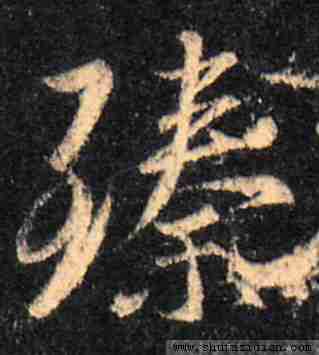 臻
www.shufazidian.com